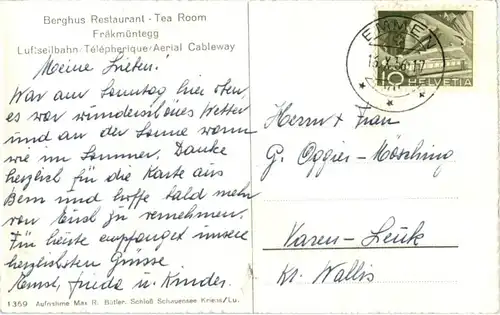 Berghus Restaurant - Tea Room
Fräkmüntegg
Luftseilbahn/Télépherique/Aerial Cableway
Meine Lieben!
War am Sonntag hier oben,
es war wunderschönes Wetter
und an der Sonne warm
wie im Sommer. Danke
herzlich für die Karte aus
Bern und hoffe bald mehr
von Euch zu vernehmen.
Für heute empfanget unsere
herzlichsten Grüsse
Ernst, Frieda u. Kinder.
1359 Aufnahme Max R. Bütler, Schloß Schauensee Kriens/Lu.
EMMEN
10 HELVETIA
Herrn & Frau
G. Oggier-Mösching
Varen-Leuk
Kt. Wallis